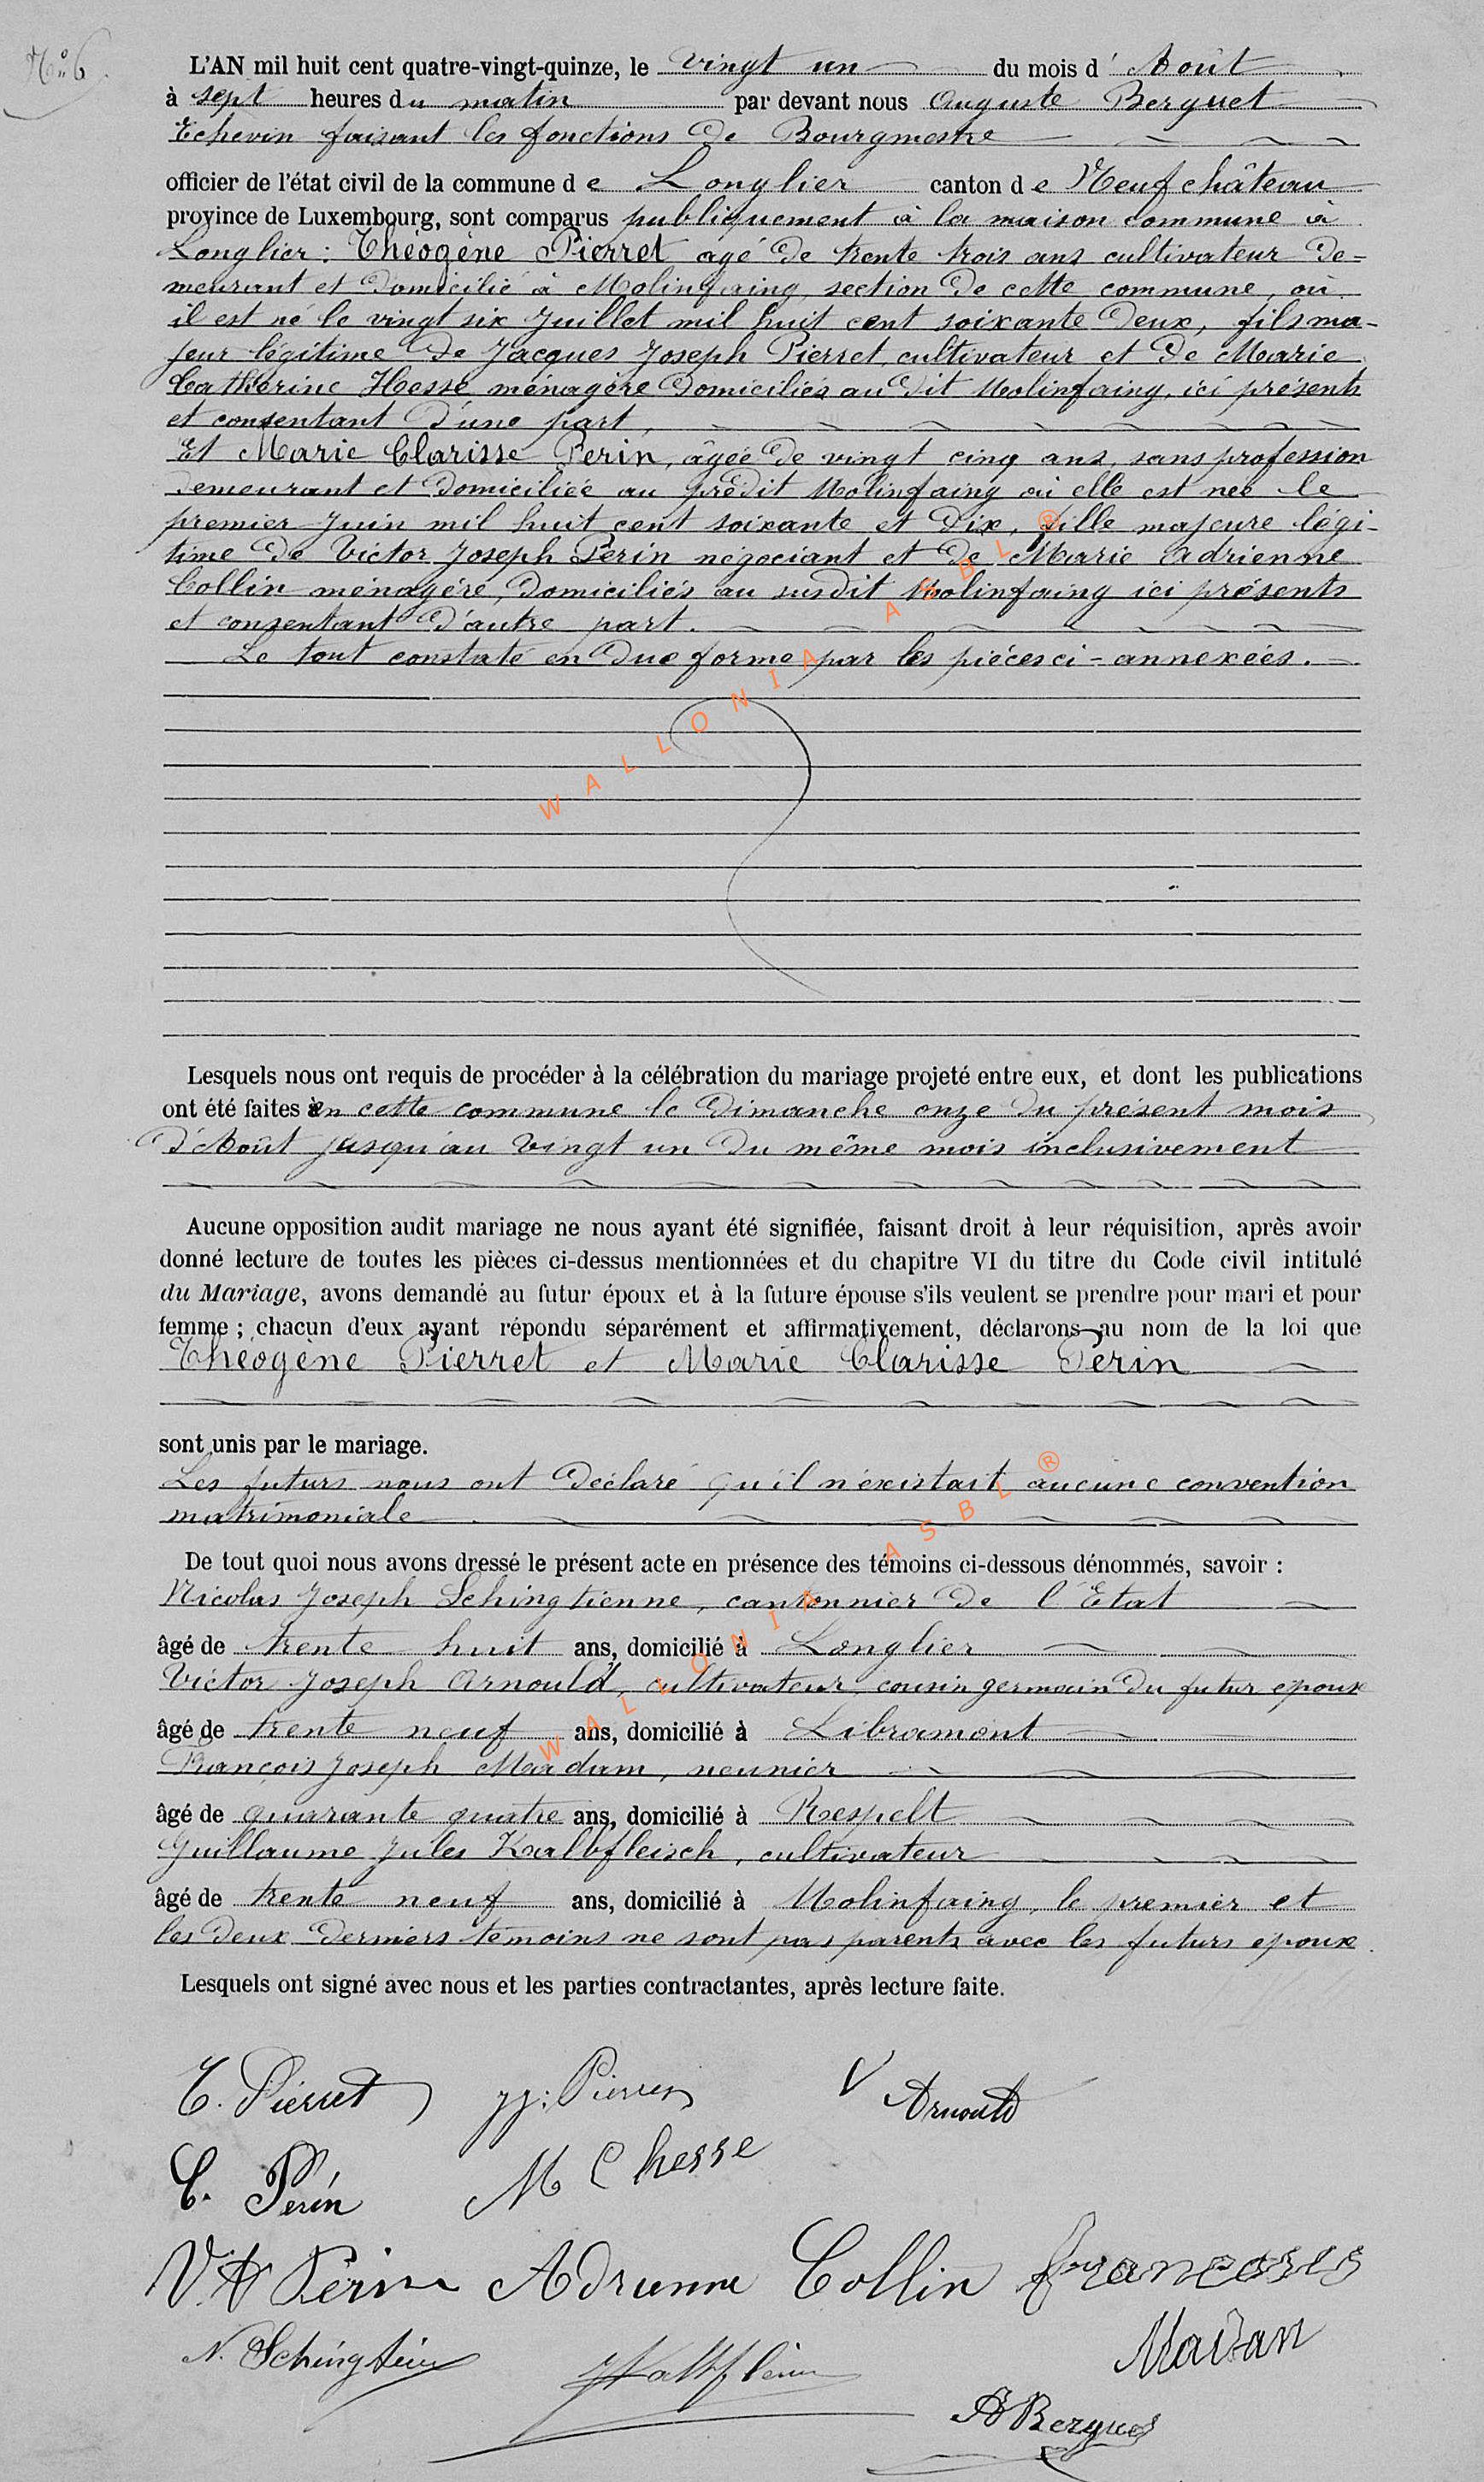 No 6
L'AN mil huit cent quatre-vingt-quinze, le vingt un du mois d' Août
à sept heures du matin par devant nous Auguste Berguet
Echevin faisant les fonctions de Bourgmestre
officier de l'état civil de la commune de Longlier canton de Neufchâteau
province de Luxembourg, sont comparus publiquement à la maison commune à
Longlier : Théogène Pierret agé de trente trois ans cultivateur de=
meurant et domicilié à Molinfaing, section de cette commune, où
il est né le vingt six Juillet mil huit cent soixante deux, fils ma-
jeur légitime de Jacques Joseph Pierret, cultivateur et de Marie
Catherine Hesse ménagère domiciliés au dit Molinfaing, ici présents
et consentant d'une part,
Et Marie Clarisse Perin, âgée de vingt cinq ans, sans profession
demeurant et domiciliée au prédit Molinfaing où elle est née le
premier Juin mil huit cent soixante et dix, fille majeure légi-
time de Victor Joseph Perin négociant et de Marie Adrienne
Collin ménagère, domiciliés au susdit Molinfaing ici présents
et consentant d'autre part.
Le tout constaté en due forme par les pièces ci-annexées.
WALLONIA ASBL ®
Lesquels nous ont requis de procéder à la célébration du mariage projeté entre eux, et dont les publications
ont été faites en cette commune le Dimanche onze du présent mois
d'Août jusqu'au vingt un du même mois inclusivement
Aucune opposition audit mariage ne nous ayant été signifiée, faisant droit à leur réquisition, après avoir
donné lecture de toutes les pièces ci-dessus mentionnées et du chapitre VI du titre du Code civil intitulé
du Mariage, avons demandé au futur époux et à la future épouse s'ils veulent se prendre pour mari et pour
femme ; chacun d'eux ayant répondu séparément et affirmativement, déclarons au nom de la loi que
Théogène Pierret et Marie Clarisse Perin
sont unis par le mariage.
Les futurs nous ont déclaré qu'il n'éxistait aucune convention
matrimoniale
De tout quoi nous avons dressé le présent acte en présence des témoins ci-dessous dénommés, savoir :
Nicolas Joseph Schingtienne, cantonnier de l'Etat
âgé de trente huit ans, domicilié à Longlier
Victor Joseph Arnould, cultivateur, cousin germain du futur epoux
âgé de trente neuf ans, domicilié à Libramont
WALLONIA ASBL ®
François Joseph Maadam, meunier
âgé de quarante quatre ans, domicilié à Respelt
Guillaume Jules Kalbfleisch, cultivateur
âgé de trente neuf ans, domicilié à Molinfaing, le premier et
les deux derniers témoins ne sont pas parents avec les futurs epoux.
Lesquels ont signé avec nous et les parties contractantes, après lecture faite.
T. Pierret jj: Pierret V Arnould
C. Périn M C hesse
V. J Perin Adrienne Collin francois
Madan
N. Schingtienne
A Berguet